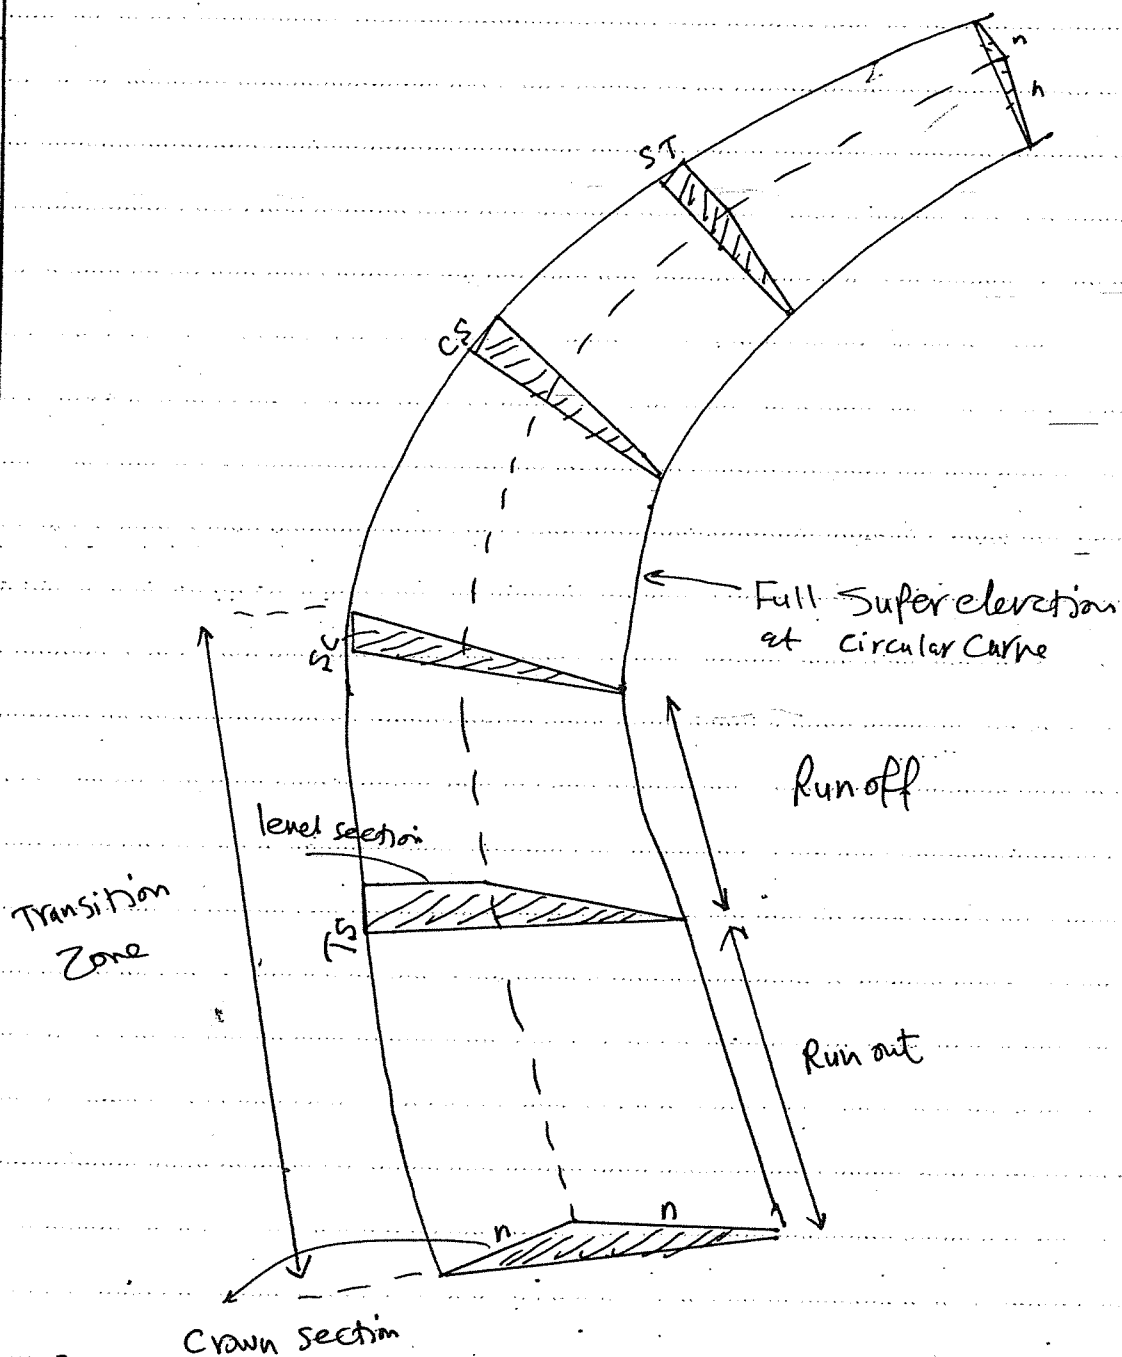 n
n
ST
CS
Full Superelevation
at circular Curve
SC
Runoff
level section
Transition
Zone
TS
Run out
n
n
Crown section